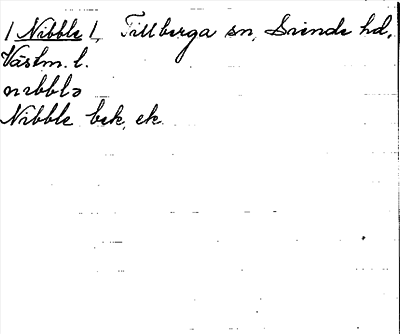 / Nibble /, Tillberga sn, Siende hd,
Västm. l.
nɩbblə
Nibble bek, ek